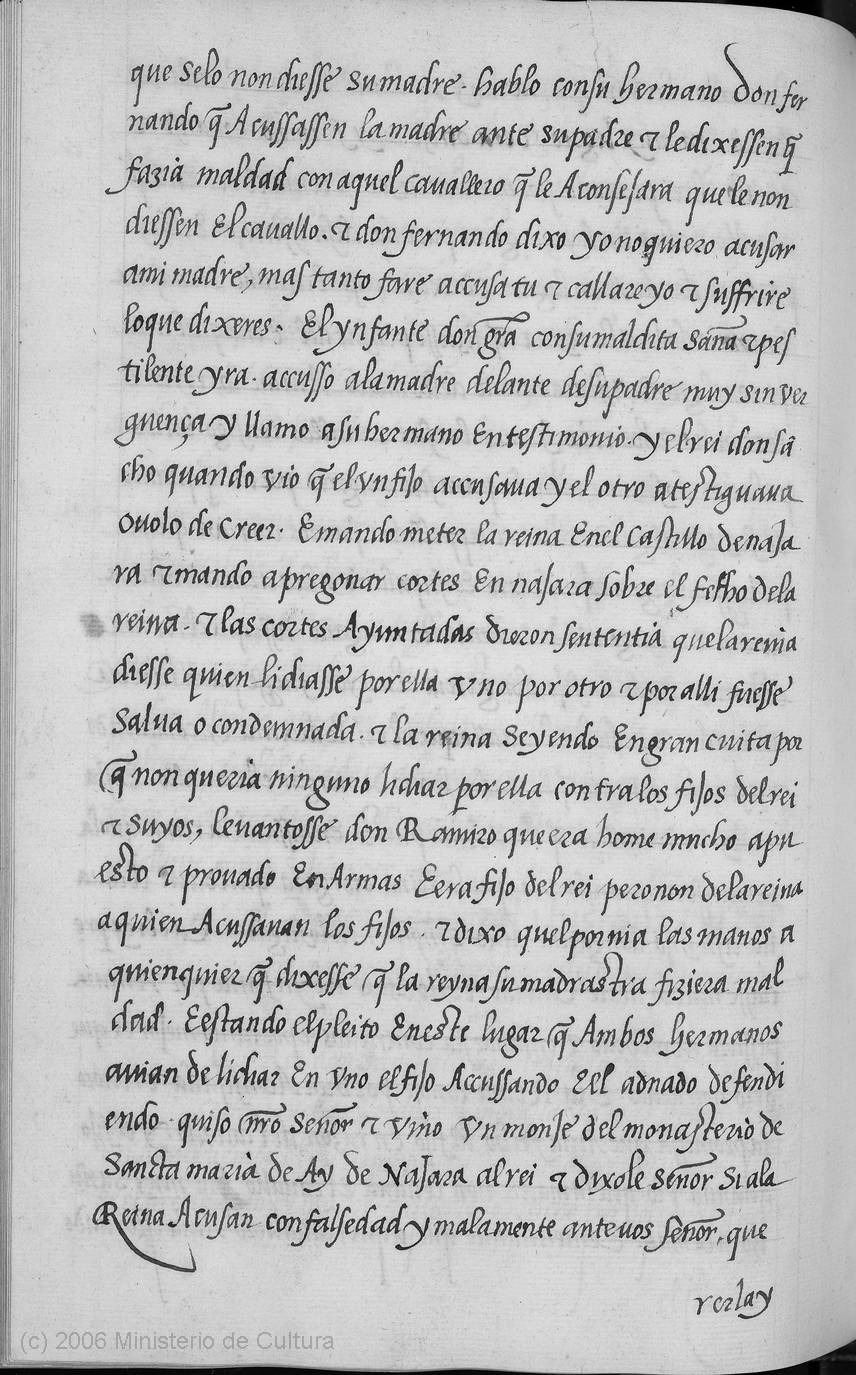 que selo non diesse su madre. hablo con su hermano don fer
nando q̃ Acussassen la madre ante su padre τ le dixessen q̃
fazia maldad con aquel cavallero q̃ le Aconsejara que le non
diessen El cavallo. τ don fernando dixo yo no quiero acusar
a mi madre, mas tanto fare accusa tu τ callare yo τ suffrire
lo que dixeres. El ynfante don gr̃a con su maldita saña τ pes
tilente yra. accusso a la madre delante de su padre muy sin ver
guença y llamo a su hermano En testimonio. y el rei don sã
cho quando vio q̃ el vn fijo accusava y el otro atestiguava
ovolo de Creer. E mando meter la reina En el Castillo de naja
ra τ mando apregonar cortes En najara sobre el fecho de la
reina. τ las cortes Ayuntadas dieron sententia que la reina
diesse quien lidiasse por ella vno por otro τ por alli fuesse
salva o condemnada. τ la reina seyendo En gran cuita por
q̃ non queria ninguno lidiar por ella contra los fijos del rei
τ suyos, levantosse don Ramiro que era home mucho apu
esto τ provado En Armas E era fijo del rei pero non de la reina
a quien Acussavan los fijos. τ dixo quel pornia las manos a
quienquier q̃ dixesse q̃ la reyna su madrastra fiziera mal
dad. E estando el pleito En este lugar q̃ Ambos hermanos
avian de lidiar En vno el fijo Accussando E el adnado defendi
endo. quiso nr̃o señor τ vino vn monje del monasterio de
Sancta maria de Ay de Najara al rei τ dixole señor Si a la
Reina Acusan con falsedad y malamente ante vos señor, que
rer la y
(c) 2006 Ministerio de Cultura